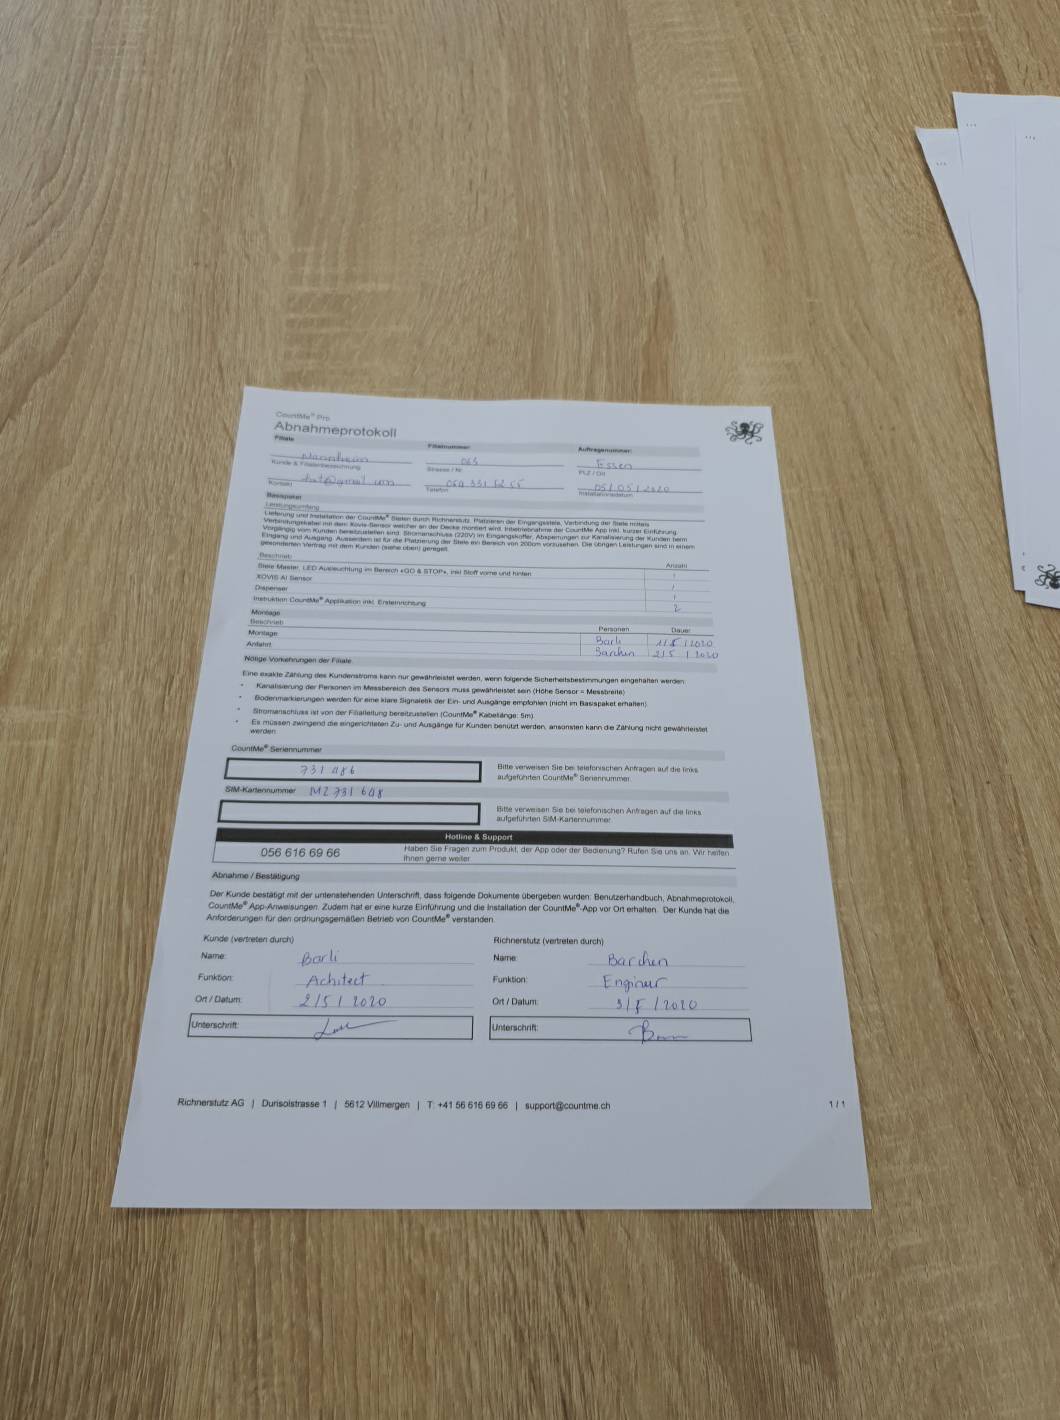 CountMe® Pro
Abnahmeprotokoll
Filiale Filialnummer: Auftragsnummer:
Mannheim 063 Essen
Kunde & Filialenbezeichnung Strasse / Nr. PLZ / Ort
@gmail 05/05/2020
Kontakt Telefon Installationsdatum
Basispaket
Leistungsumfang
Lieferung und Installation der CountMe® Stelen durch Richnerstutz. Platzieren der Eingangsstele, Verbindung der Stele mittels
Verbindungskabel mit dem Xovis-Sensor welcher an der Decke montiert wird. Inbetriebnahme der CountMe App inkl. kurzer Einführung.
Vorgängig vom Kunden bereitzustellen sind: Stromanschluss (220V) im Eingangskoffer, Absperrungen zur Kanalisierung der Kunden beim
Eingang und Ausgang. Ausserdem ist für die Platzierung der Stele ein Bereich von 200cm vorzusehen. Die übrigen Leistungen sind in einem
gesonderten Vertrag mit dem Kunden (siehe oben) geregelt.
Beschrieb Anzahl
Stele Master, LED Ausleuchtung im Bereich «GO & STOP», inkl Stoff vorne und hinten 1
XOVIS AI Sensor 1
Dispenser 1
Instruktion CountMe® Applikation inkl. Ersteinrichtung 2
Montage
Beschrieb Personen Dauer
Montage Barli 1/5/2020
Anfahrt Barchen 2/5/2020
Nötige Vorkehrungen der Filiale
Eine exakte Zählung des Kundenstroms kann nur gewährleistet werden, wenn folgende Sicherheitsbestimmungen eingehalten werden:
• Kanalisierung der Personen im Messbereich des Sensors muss gewährleistet sein (Höhe Sensor = Messbreite)
• Bodenmarkierungen werden für eine klare Signaletik der Ein- und Ausgänge empfohlen (nicht im Basispaket erhalten).
• Stromanschluss ist von der Filialleitung bereitzustellen (CountMe® Kabellänge: 5m)
• Es müssen zwingend die eingerichteten Zu- und Ausgänge für Kunden benützt werden, ansonsten kann die Zählung nicht gewährleistet
werden.
CountMe® Seriennummer
731 486 Bitte verweisen Sie bei telefonischen Anfragen auf die links
aufgeführten CountMe® Seriennummer.
SIM-Kartennummer MZ 731 648
Bitte verweisen Sie bei telefonischen Anfragen auf die links
aufgeführten SIM-Kartennummer.
Hotline & Support
056 616 69 66 Haben Sie Fragen zum Produkt, der App oder der Bedienung? Rufen Sie uns an. Wir helfen
Ihnen gerne weiter.
Abnahme / Bestätigung
Der Kunde bestätigt mit der untenstehenden Unterschrift, dass folgende Dokumente übergeben wurden: Benutzerhandbuch, Abnahmeprotokoll,
CountMe® App-Anweisungen. Zudem hat er eine kurze Einführung und die Installation der CountMe®-App vor Ort erhalten. Der Kunde hat die
Anforderungen für den ordnungsgemäßen Betrieb von CountMe® verstanden.
Kunde (vertreten durch) Richnerstutz (vertreten durch)
Name: Barli Name: Barchen
Funktion: Achitect Funktion: Enginer
Ort / Datum: 2/5/2020 Ort / Datum: 3/5/2020
Unterschrift: Unterschrift:
Richnerstutz AG | Durisolstrasse 1 | 5612 Villmergen | T: +41 56 616 69 66 | support@countme.ch 1 / 1